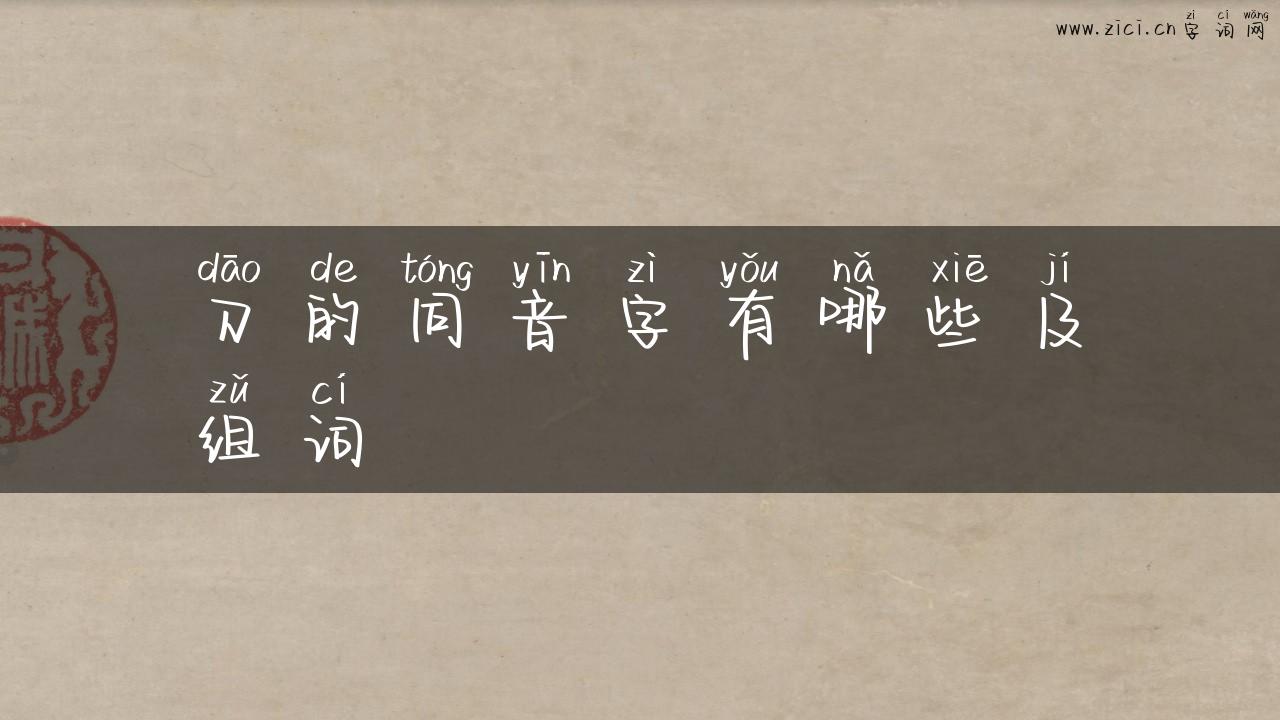 zì cí wǎng
www.zici.cn 字词网
dāo de tóng yīn zì yǒu nǎ xiē jí
刀的同音字有哪些及
zǔ cí
组词